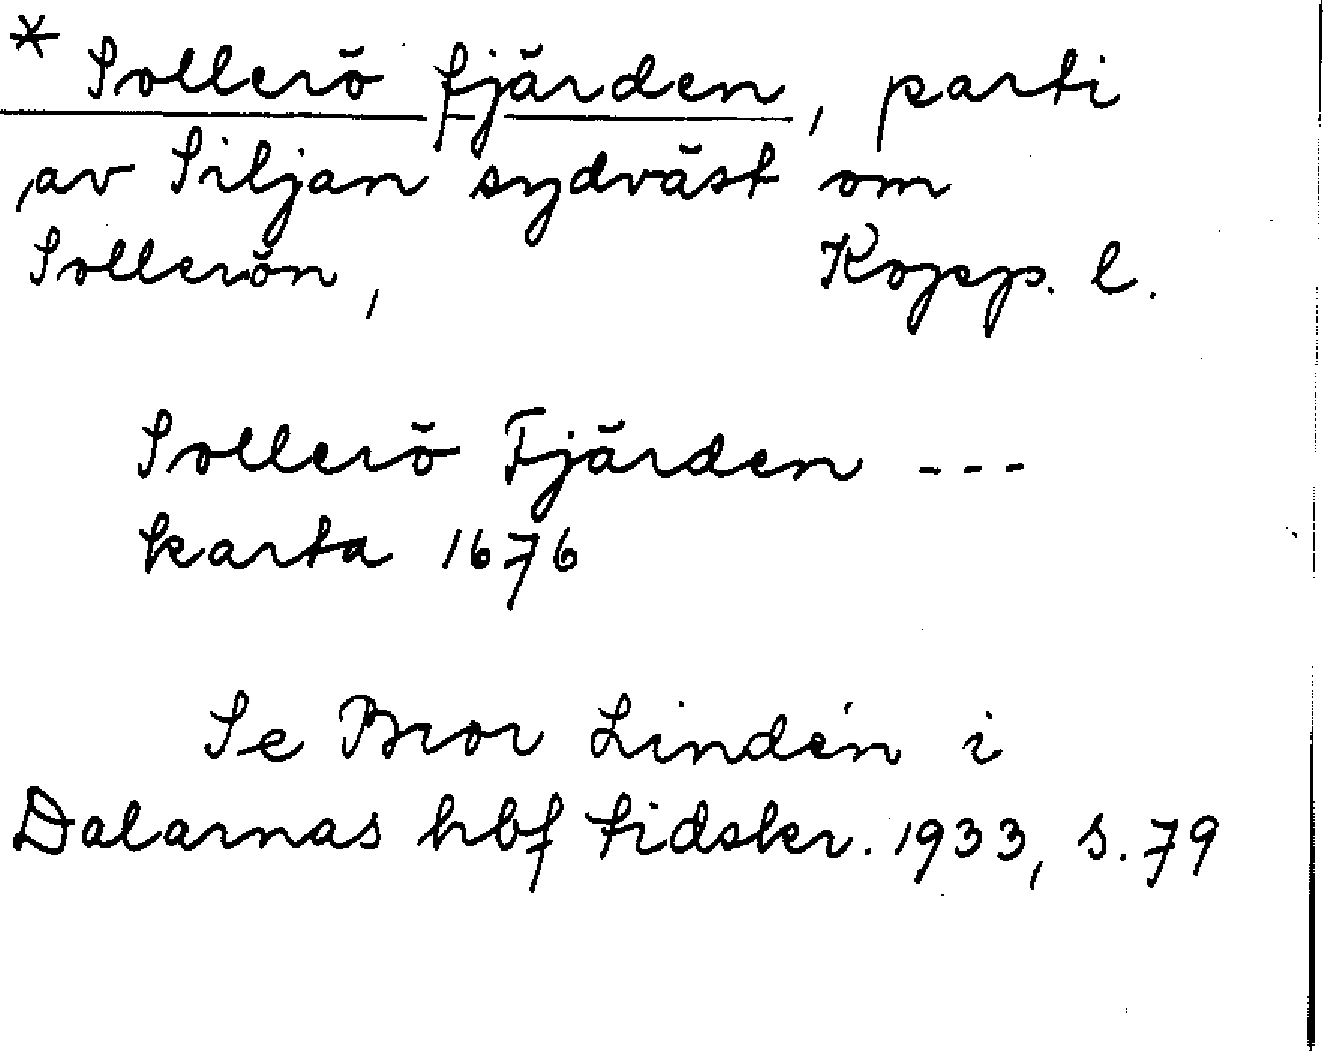 * Sollerö fjärden, parti
av Siljan sydväst om
Sollerön, Kopp. l.
Sollerö Fjärden ---
karta 1676
Se Bror Lindén i
Dalarnas hbf tidskr. 1933, s. 79